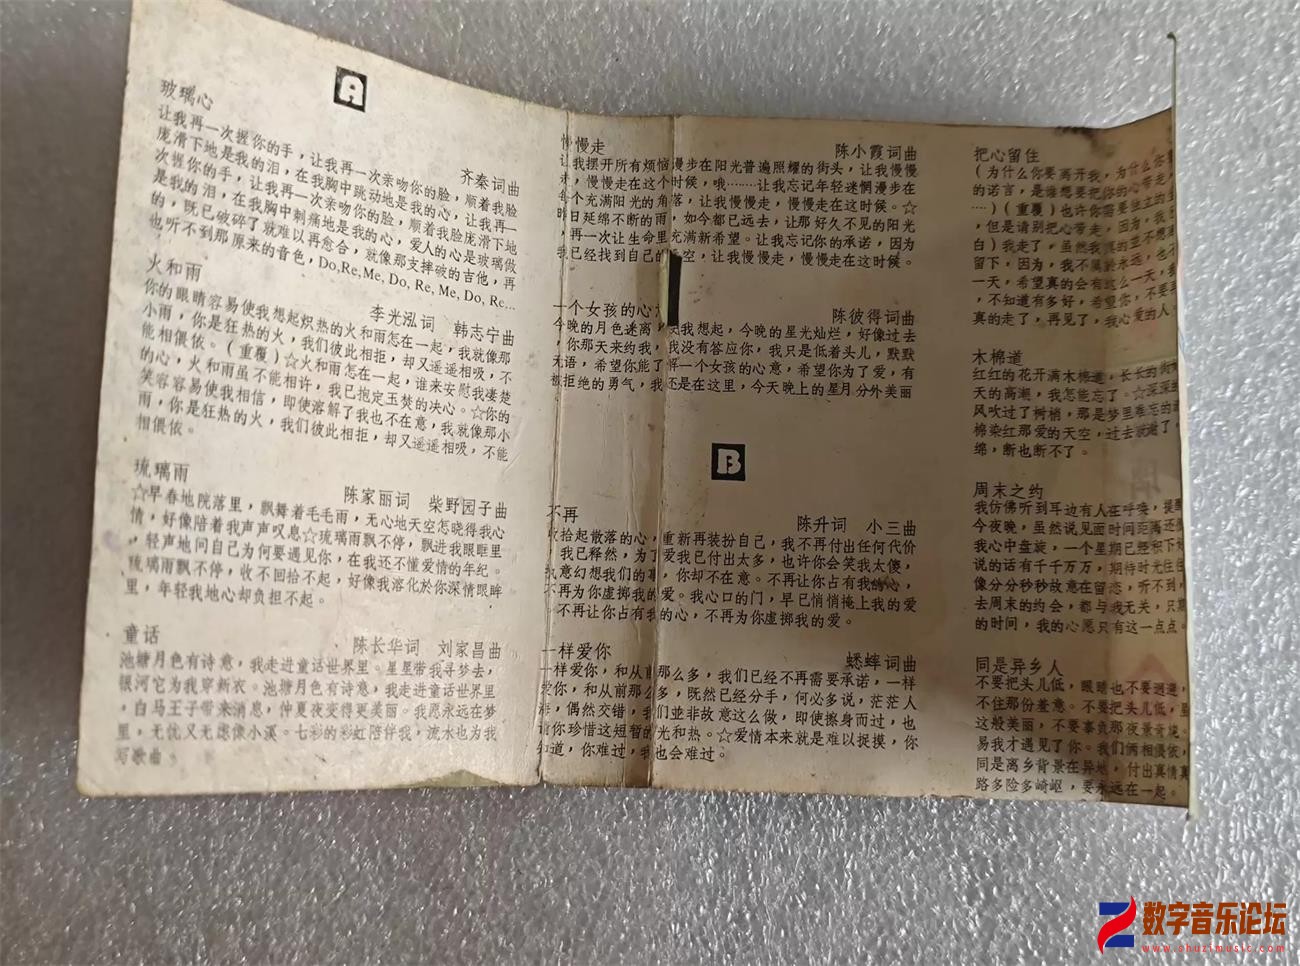 A
玻璃心
齐秦词曲
让我再一次握你的手，让我再一次亲吻你的脸，顺着我脸
庞滑下地是我的泪，在我胸中跳动地是我的心，让我再一
次握你的手，让我再一次亲吻你的脸，顺着我脸庞滑下地
是我的泪，在我胸中刺痛地是我的心，爱人的心是玻璃做
的，既已破碎了就难以再愈合，就像那支摔破的吉他，再
也听不到那原来的音色，Do,Re,Me,Do,Re,Me,Do,Re...
火和雨
李光泓词 韩志宁曲
你的眼睛容易使我想起炽热的火和雨怎在一起，我就像那
小雨，你是狂热的火，我们彼此相拒，却又遥遥相吸，不
能相偎依。（重覆）☆火和雨怎在一起，谁来安慰我凄楚
的心，火和雨虽不能相许，我已抱定玉焚的决心。☆你的
笑容容易使我相信，即使溶解了我也不在意，我就像那小
雨，你是狂热的火，我们彼此相拒，却又遥遥相吸，不能
相偎依。
琉璃雨
陈家丽词 柴野园子曲
☆早春地院落里，飘舞着毛毛雨，无心地天空怎晓得我心
情，好像陪着我声声叹息☆琉璃雨飘不停，飘进我眼眶里
，轻声地问自己为何要遇见你，在我还不懂爱情的年纪。
琉璃雨飘不停，收不回拾不起，好像我溶化於你深情眼眸
里，年轻我地心却负担不起。
童话
陈长华词 刘家昌曲
池塘月色有诗意，我走进童话世界里。星星带我寻梦去，
银河它为我穿新衣。池塘月色有诗意，我走进童话世界里
，白马王子带来消息，仲夏夜变得更美丽。我愿永远在梦
里，无忧又无虑像小溪。七彩的彩虹陪伴我，流水也为我
写歌曲。
慢慢走
陈小霞词曲
让我摆开所有烦恼漫步在阳光普遍照耀的街头，让我慢慢
走，慢慢走在这个时候，哦……让我忘记年轻迷惘漫步在
每个充满阳光的角落，让我慢慢走，慢慢走在这时候。☆
昨日延绵不断的雨，如今都已远去，让那好久不见的阳光
，再一次让生命里充满新希望。让我忘记你的承诺，因为
我已经找到自己的 空，让我慢慢走，慢慢走在这时候。
一个女孩的心
陈彼得词曲
今晚的月色迷离 我想起，今晚的星光灿烂，好像过去
，你那天来约我，我没有答应你，我只是低着头儿，默默
无语，希望你能了解一个女孩的心意，希望你为了爱，有
被拒绝的勇气，我还是在这里，今天晚上的星月分外美丽
B
不再
陈升词 小三曲
收拾起散落的心，重新再装扮自己，我不再付出任何代价
，我已释然，为了爱我已付出太多，也许你会笑我太傻，
我意幻想我们的事，你却不在意。不再让你占有我的心，
不再为你虚掷我的爱。我心口的门，早已悄悄掩上我的爱
。不再让你占有我的心，不再为你虚掷我的爱。
一样爱你
蟋蟀词曲
一样爱你，和从前那么多，我们已经不再需要承诺，一样
爱你，和从前那么多，既然已经分手，何必多说，茫茫人
海，偶然交错，我们並非故意这么做，即使擦身而过，也
请你珍惜这短暂的光和热。☆爱情本来就是难以捉摸，你
知道，你难过，我也会难过。
把心留住
（为什么你要离开我，为什么你
的诺言，是谁想要把你的心带走，
…）（重覆）也许你需要独立的
，但是请别把心带走，因为，我
白）我走了，虽然我真的並不想
留下，因为，我不属於永远，也
一天，希望真的会有这么一天，我
，不知道有多好，希望你，不要
真的走了，再见了，我心爱的人
木棉道
红红的花开满木棉道，长长的街
天的高潮，我怎能忘了。☆深深
风吹过了树梢，那是梦里难忘的
棉染红那爱的天空，过去就
绵，断也断不了。
周末之约
我仿佛听到耳边有人在呼唤，提醒
今夜晚，虽然说见面时间距离还
我心中盘旋，一个星期已经积下
说的话有千千万万，期待时光往
像分分秒秒故意在留恋，听不到，
去周末的约会，都与我无关，只
的时间，我的心愿只有这一点点。
同是异乡人
不要把头儿低，眼睛也不要迴避，
不住那份羞意。不要把头儿低，
这般美丽，不要辜负那夜景
易我才遇见了你。我们俩相偎依，
同是离乡背景在异地，付出真情真
路多险多崎岖，要永远在一起。
数字音乐论坛
www.shuzimusic.com